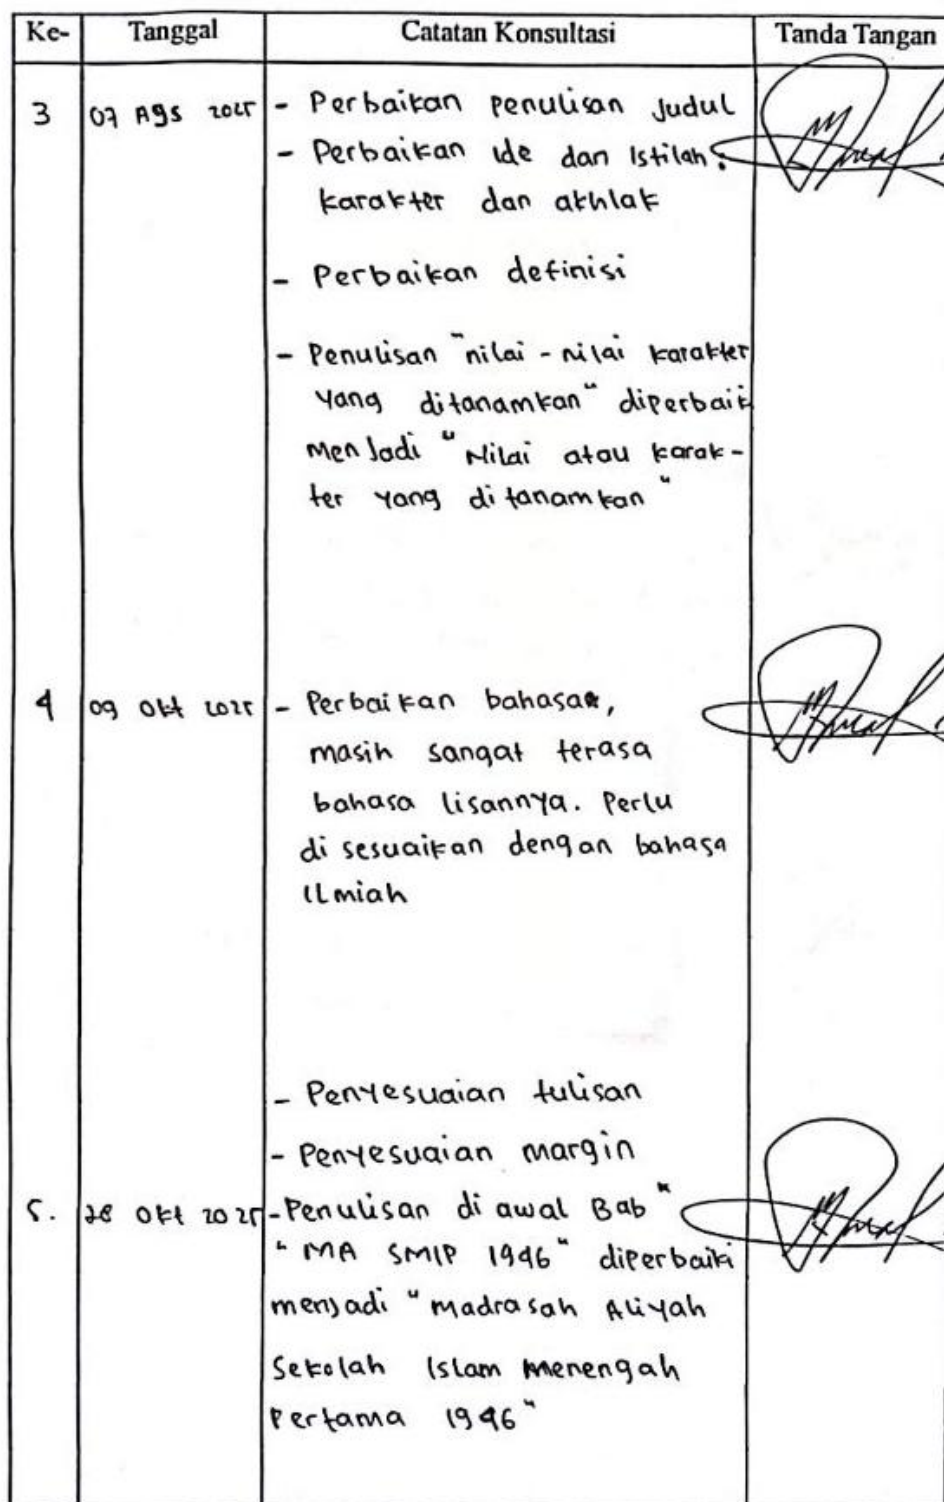 Ke- Tanggal Catatan Konsultasi Tanda Tangan
3 07 Ags 2025 - Perbaikan penulisan Judul
- Perbaikan ide dan Istilah :
karakter dan akhlak
- Perbaikan definisi
- Penulisan "nilai - nilai karakter
yang ditanamkan" diperbaik
menjadi "Nilai atau karak-
ter yang ditanamkan"
4 09 Okt 2025 - Perbaikan bahasa,
masih sangat terasa
bahasa lisannya. Perlu
disesuaikan dengan bahasa
Ilmiah
- Penyesuaian tulisan
- Penyesuaian margin
5. 28 Okt 2025 - Penulisan di awal Bab "
"MA SMIP 1946" diperbaiki
menjadi "Madrasah Aliyah
Sekolah Islam Menengah
Pertama 1946"